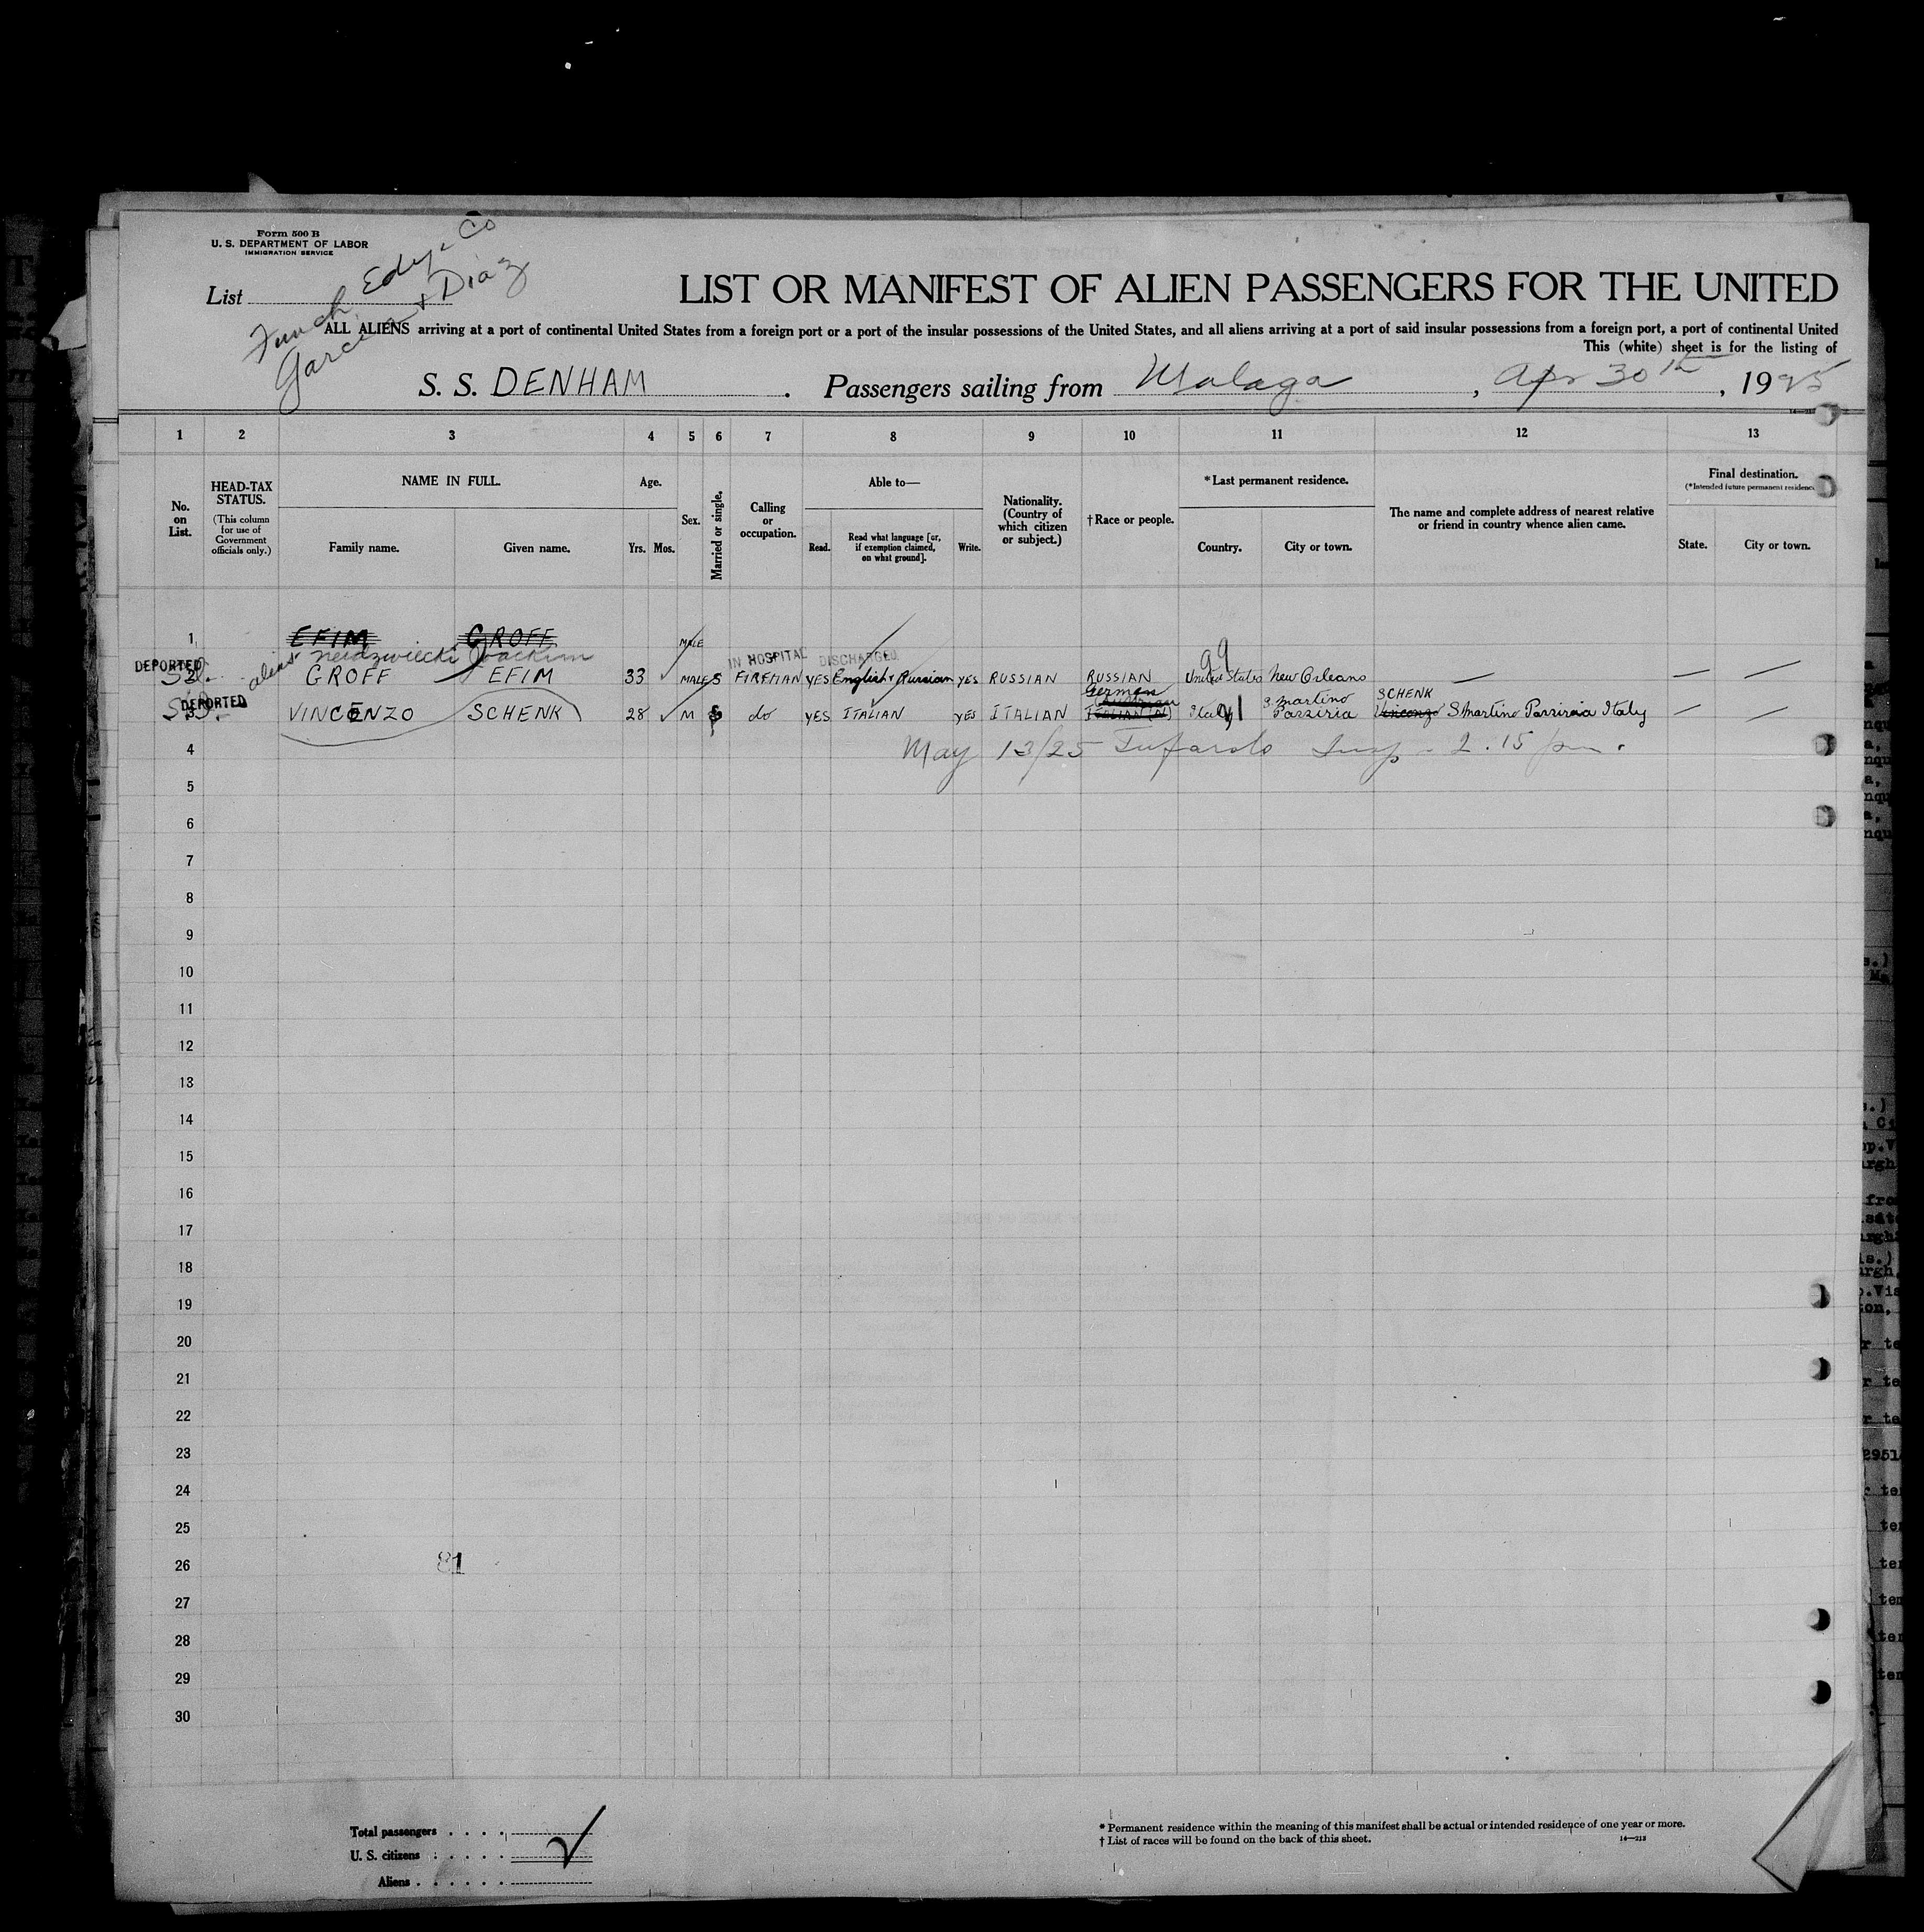 Form 500 B
U. S. DEPARTMENT OF LABOR
IMMIGRATION SERVICE
List
Funch Edye & Co
Garcia & Diaz
LIST OR MANIFEST OF ALIEN PASSENGERS FOR THE UNITED
ALL ALIENS arriving at a port of continental United States from a foreign port or a port of the insular possessions of the United States, and all aliens arriving at a port of said insular possessions from a foreign port, a port of continental United
This (white) sheet is for the listing of
S. S. DENHAM. Passengers sailing from Malaga, Apr 30th, 1925
1 2 3 4 5 6 7 8 9 10 11 12 13
No. on List.
HEAD-TAX STATUS.
(This column for use of Government officials only.)
NAME IN FULL.
Family name. Given name.
Age.
Yrs. Mos.
Sex.
Married or single.
Calling or occupation.
Able to—
Read. Read what language [or, if exemption claimed, on what ground]. Write.
Nationality. (Country of which citizen or subject.)
†Race or people.
*Last permanent residence.
Country. City or town.
The name and complete address of nearest relative or friend in country whence alien came.
Final destination.
(*Intended future permanent residence
State. City or town.
1 EFIM GROFF MALE
alias Neidzwiecki Joackim IN HOSPITAL DISCHARGED 99
DEPORTED 2 GROFF EFIM 33 MALE S FIREMAN YES English & Russian YES RUSSIAN RUSSIAN United States New Orleans — — —
German S. Martino SCHENK
DEPORTED 3 VINCENZO SCHENK 28 M S do YES ITALIAN YES ITALIAN ITALIAN Italy Passiria Vincenzo S Martino Passiria Italy — —
4 May 13/25 Tufarolo Insp - 2.15 pm.
5
6
7
8
9
10
11
12
13
14
15
16
17
18
19
20
21
22
23
24
25
26
81
27
28
29
30
Total passengers
U. S. citizens
Aliens
* Permanent residence within the meaning of this manifest shall be actual or intended residence of one year or more.
† List of races will be found on the back of this sheet.
14—213